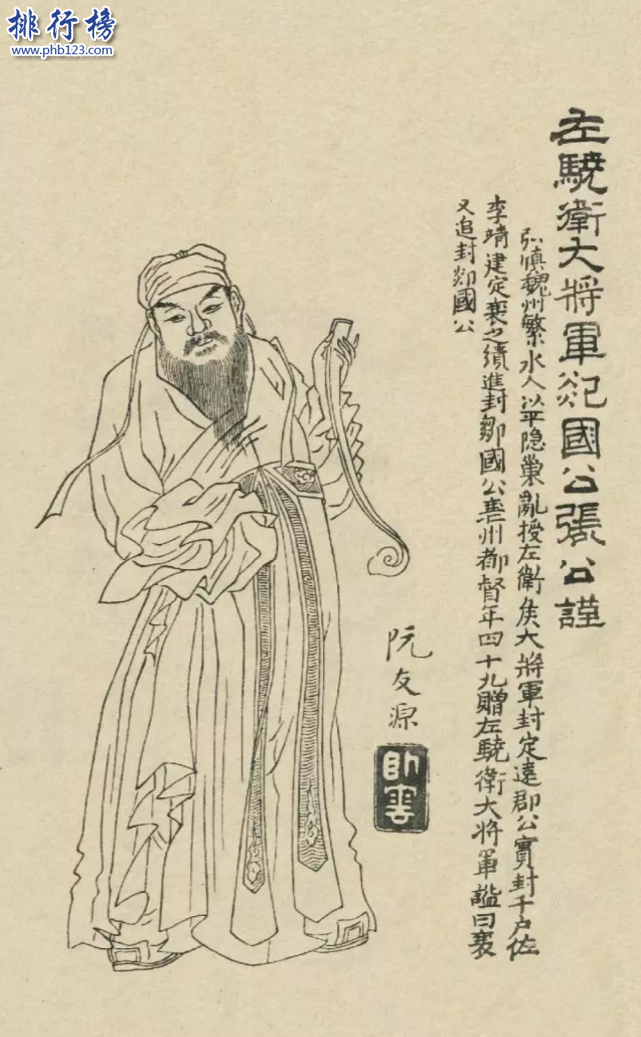 排行榜
www.phb123.com
左驍衛大將軍郯國公張公謹
弘慎魏州繁水人以平隐巢亂授左衛矦大將軍封定遠郡公實封千户佐
李靖建定襄之績進封鄒國公襄州都督年四十九贈左驍衛大將軍諡曰襄
又追封郯國公
阮友源
卧雲